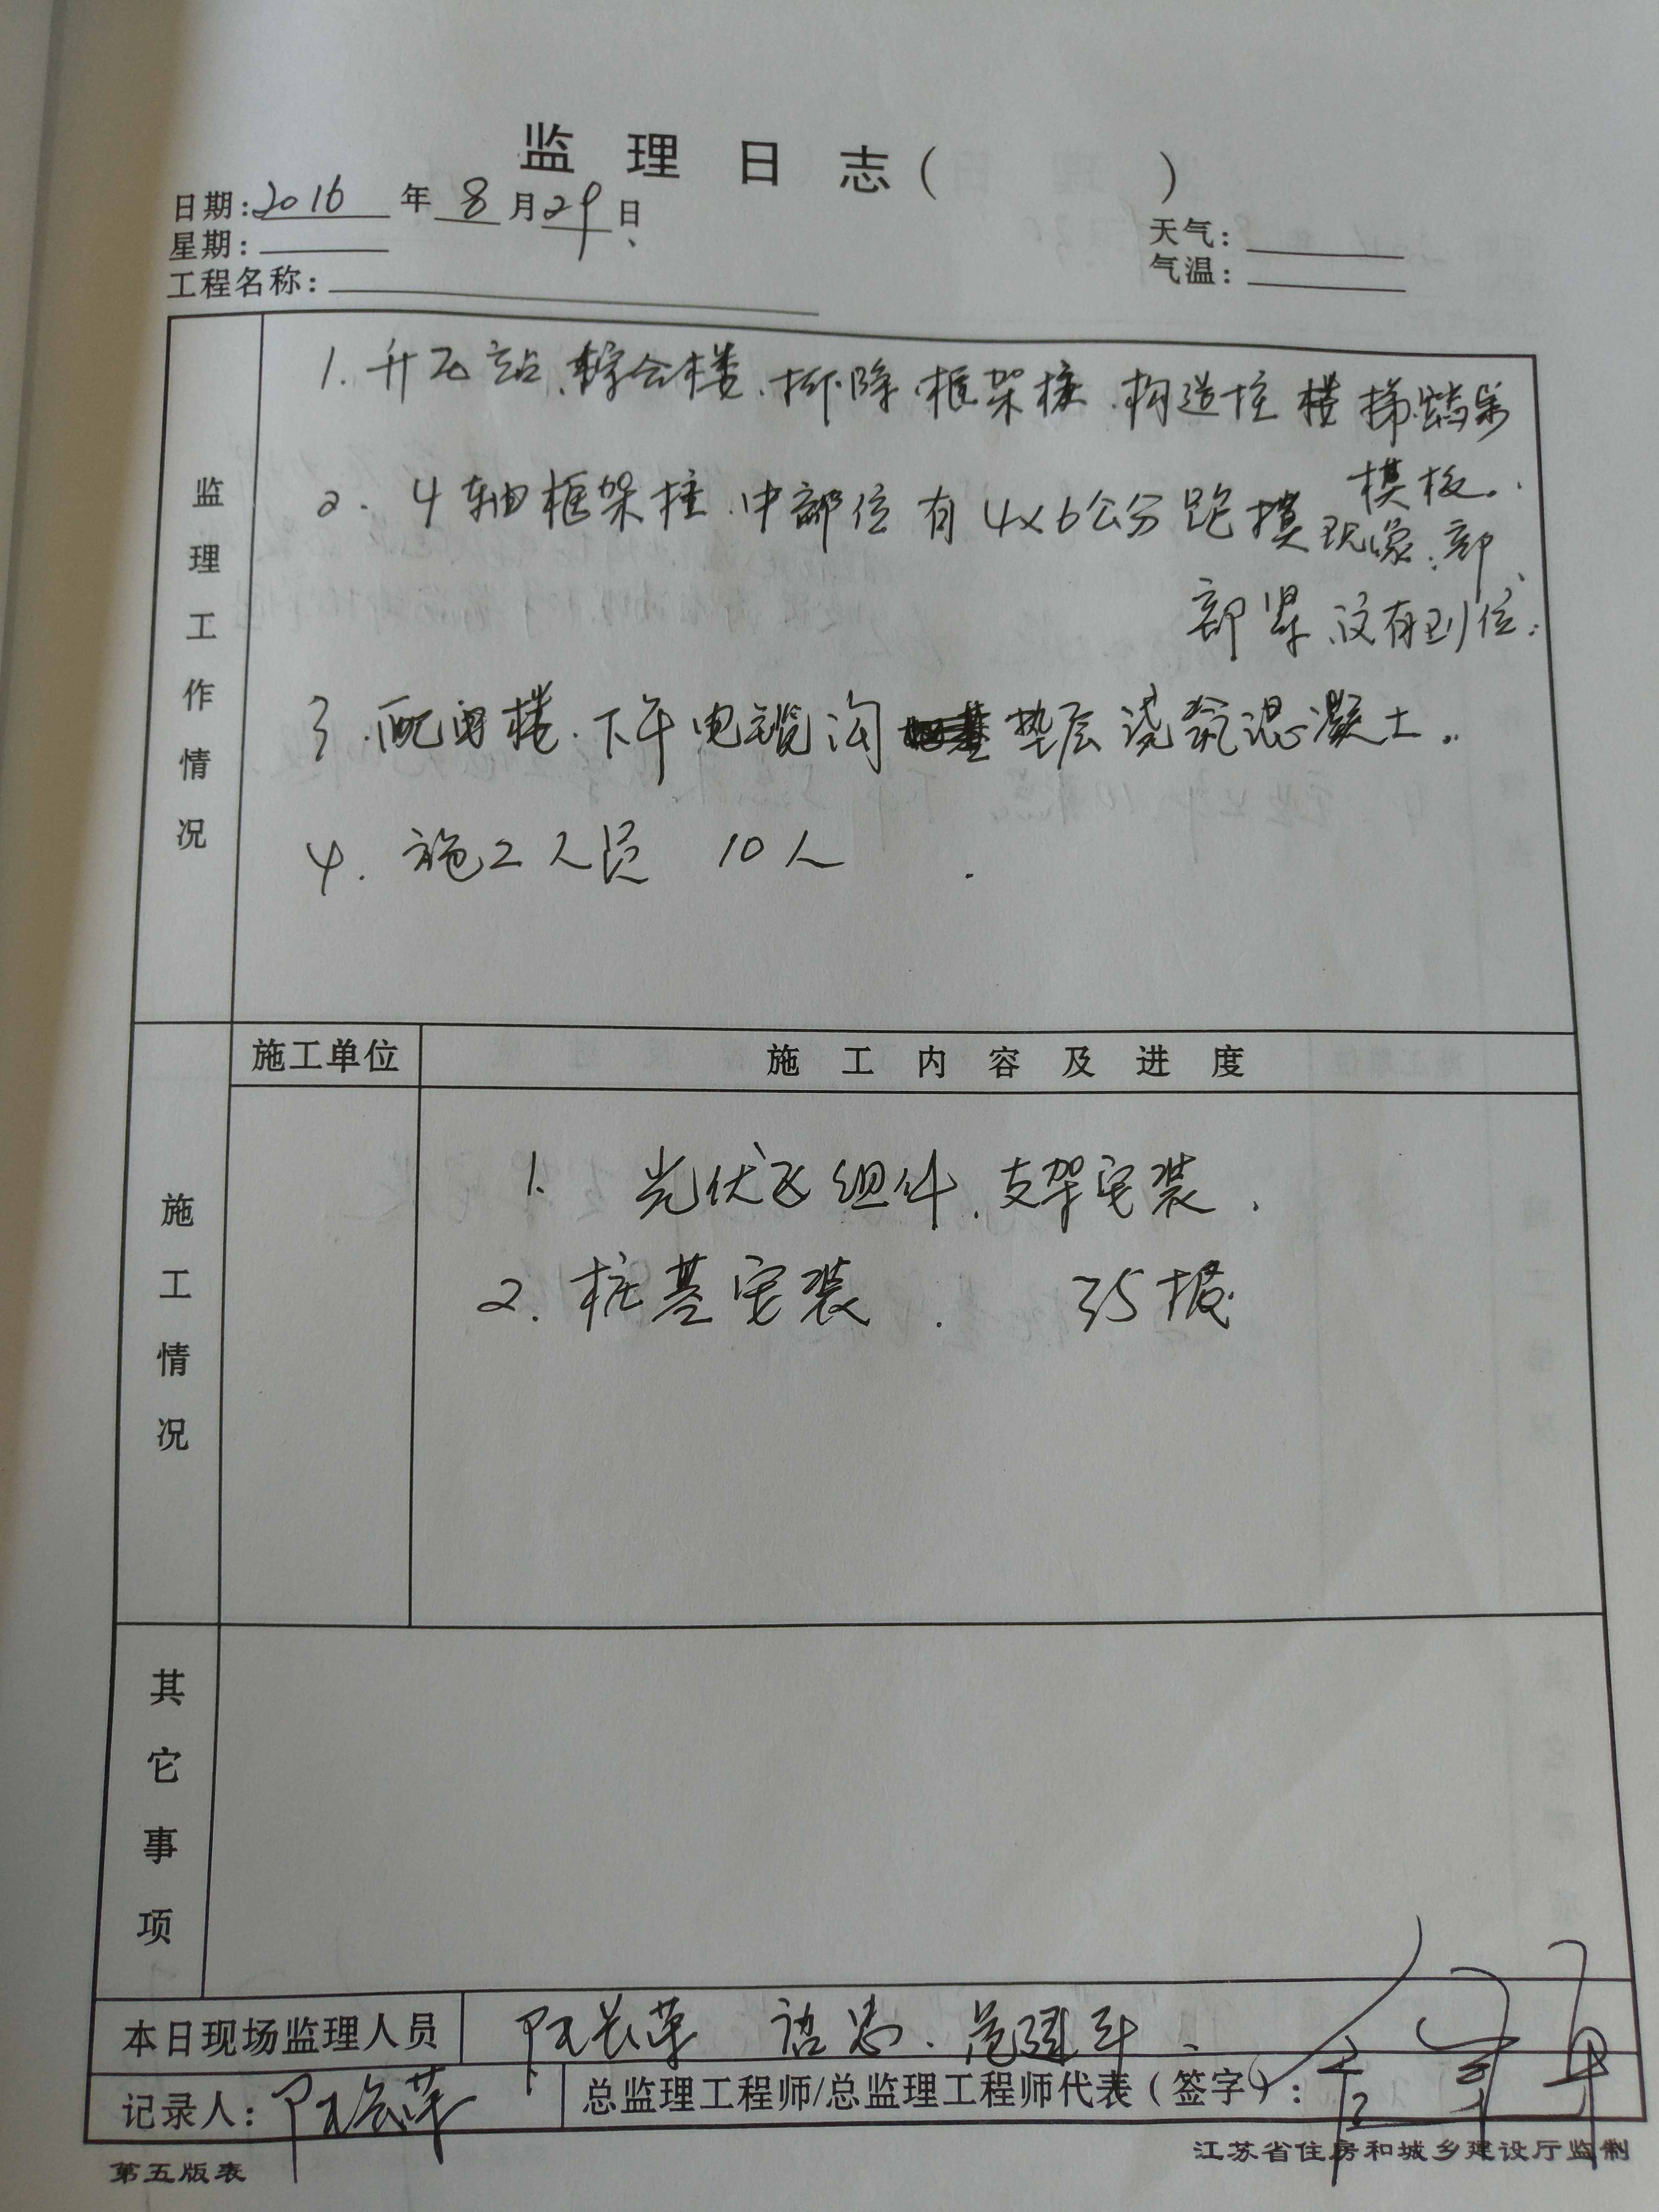 监理日志(    )
日期:2016年8月29日
星期:
天气:
气温:
工程名称:
监理工作情况
1.升压站.综合楼.拆除.框架柱.构造柱楼梯踏步
模板.
2.4轴框架柱.中部位有4x6公分跑摸现象.部
部紧.没有到位.
3.配电楼.下午电缆沟垫层浇筑混凝土.
4.施工人员 10人
施工情况
施工单位
施工内容及进度
1. 光伏区组件.支架安装.
2.桩基安装. 35根.
其它事项
本日现场监理人员
记录人:
总监理工程师/总监理工程师代表(签字):
第五版表
江苏省住房和城乡建设厅监制